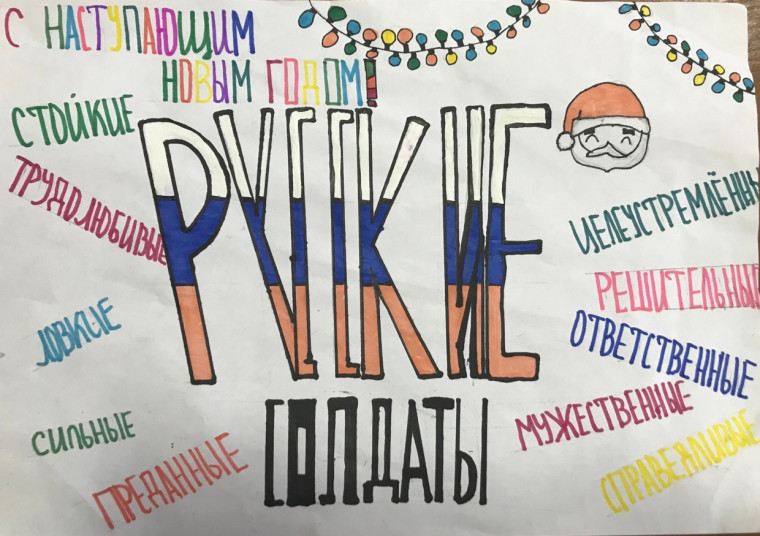 С НАСТУПАЮЩИМ
НОВЫМ ГОДОМ!
СТОЙКИЕ
ТРУДОЛЮБИВЫЕ
ЛОВКИЕ
СИЛЬНЫЕ
ПРЕДАННЫЕ
РУССКИЕ
СОЛДАТЫ
ЦЕЛЕУСТРЕМЛЁННЫ
РЕШИТЕЛЬНЫЕ
ОТВЕТСТВЕННЫЕ
МУЖЕСТВЕННЫЕ
СПРАВЕДЛИВЫЕ